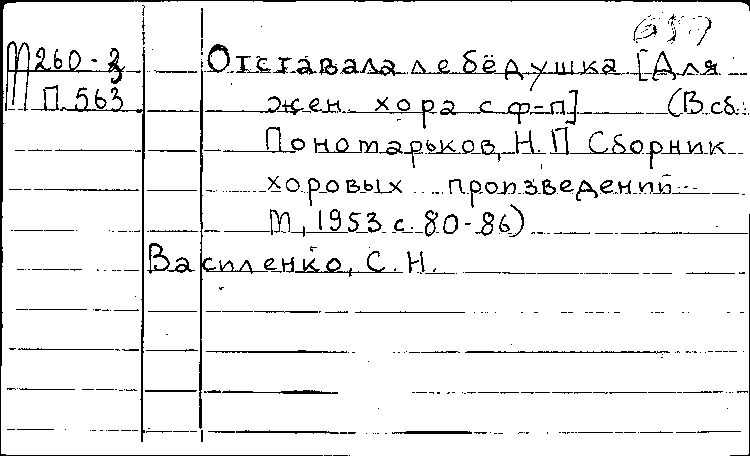 М260-3 Отставала лебёдушка [Для
П.563 жен. хора с ф-п] (В сб.:
Пономарьков, Н.П Сборник
хоровых произведений
М, 1953 с. 80-86)
Василенко, С.Н.